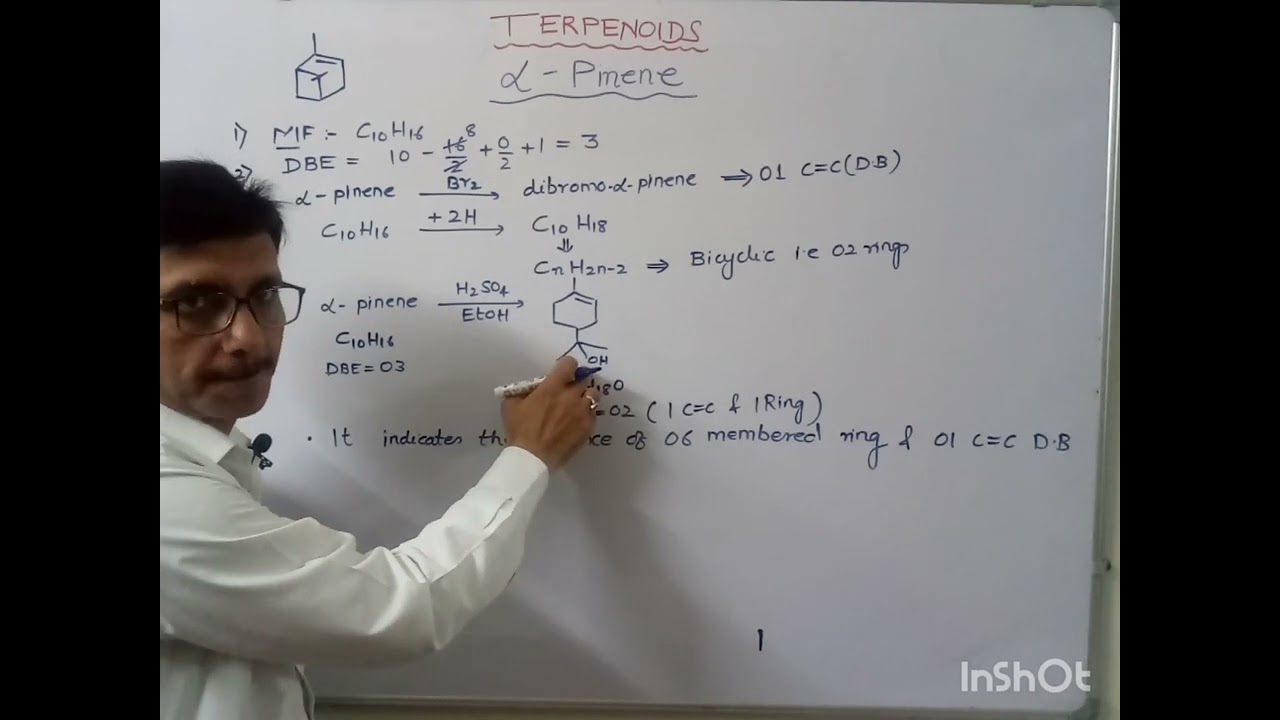 TERPENOIDS
α - Pinene
1) MF :- C10H16
2) DBE = 10 - 16/2 8 + 0/2 + 1 = 3
α-pinene Br2 → dibromo-α-pinene ⇒ 01 C=C (D.B)
C10H16 + 2H → C10H18
⇓
CnH2n-2 ⇒ Bicyclic i.e 02 rings
α- pinene H2SO4 → EtOH
C10H16
DBE = 03
OH
18O
=02 (1 C=C & 1 Ring)
• It indicates of 06 membered ring & 01 C=C D.B
1
InShOt